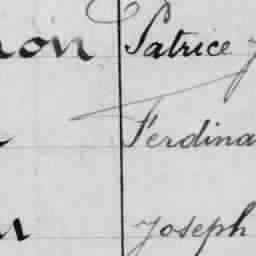 non Patrice
Ferdina
Joseph